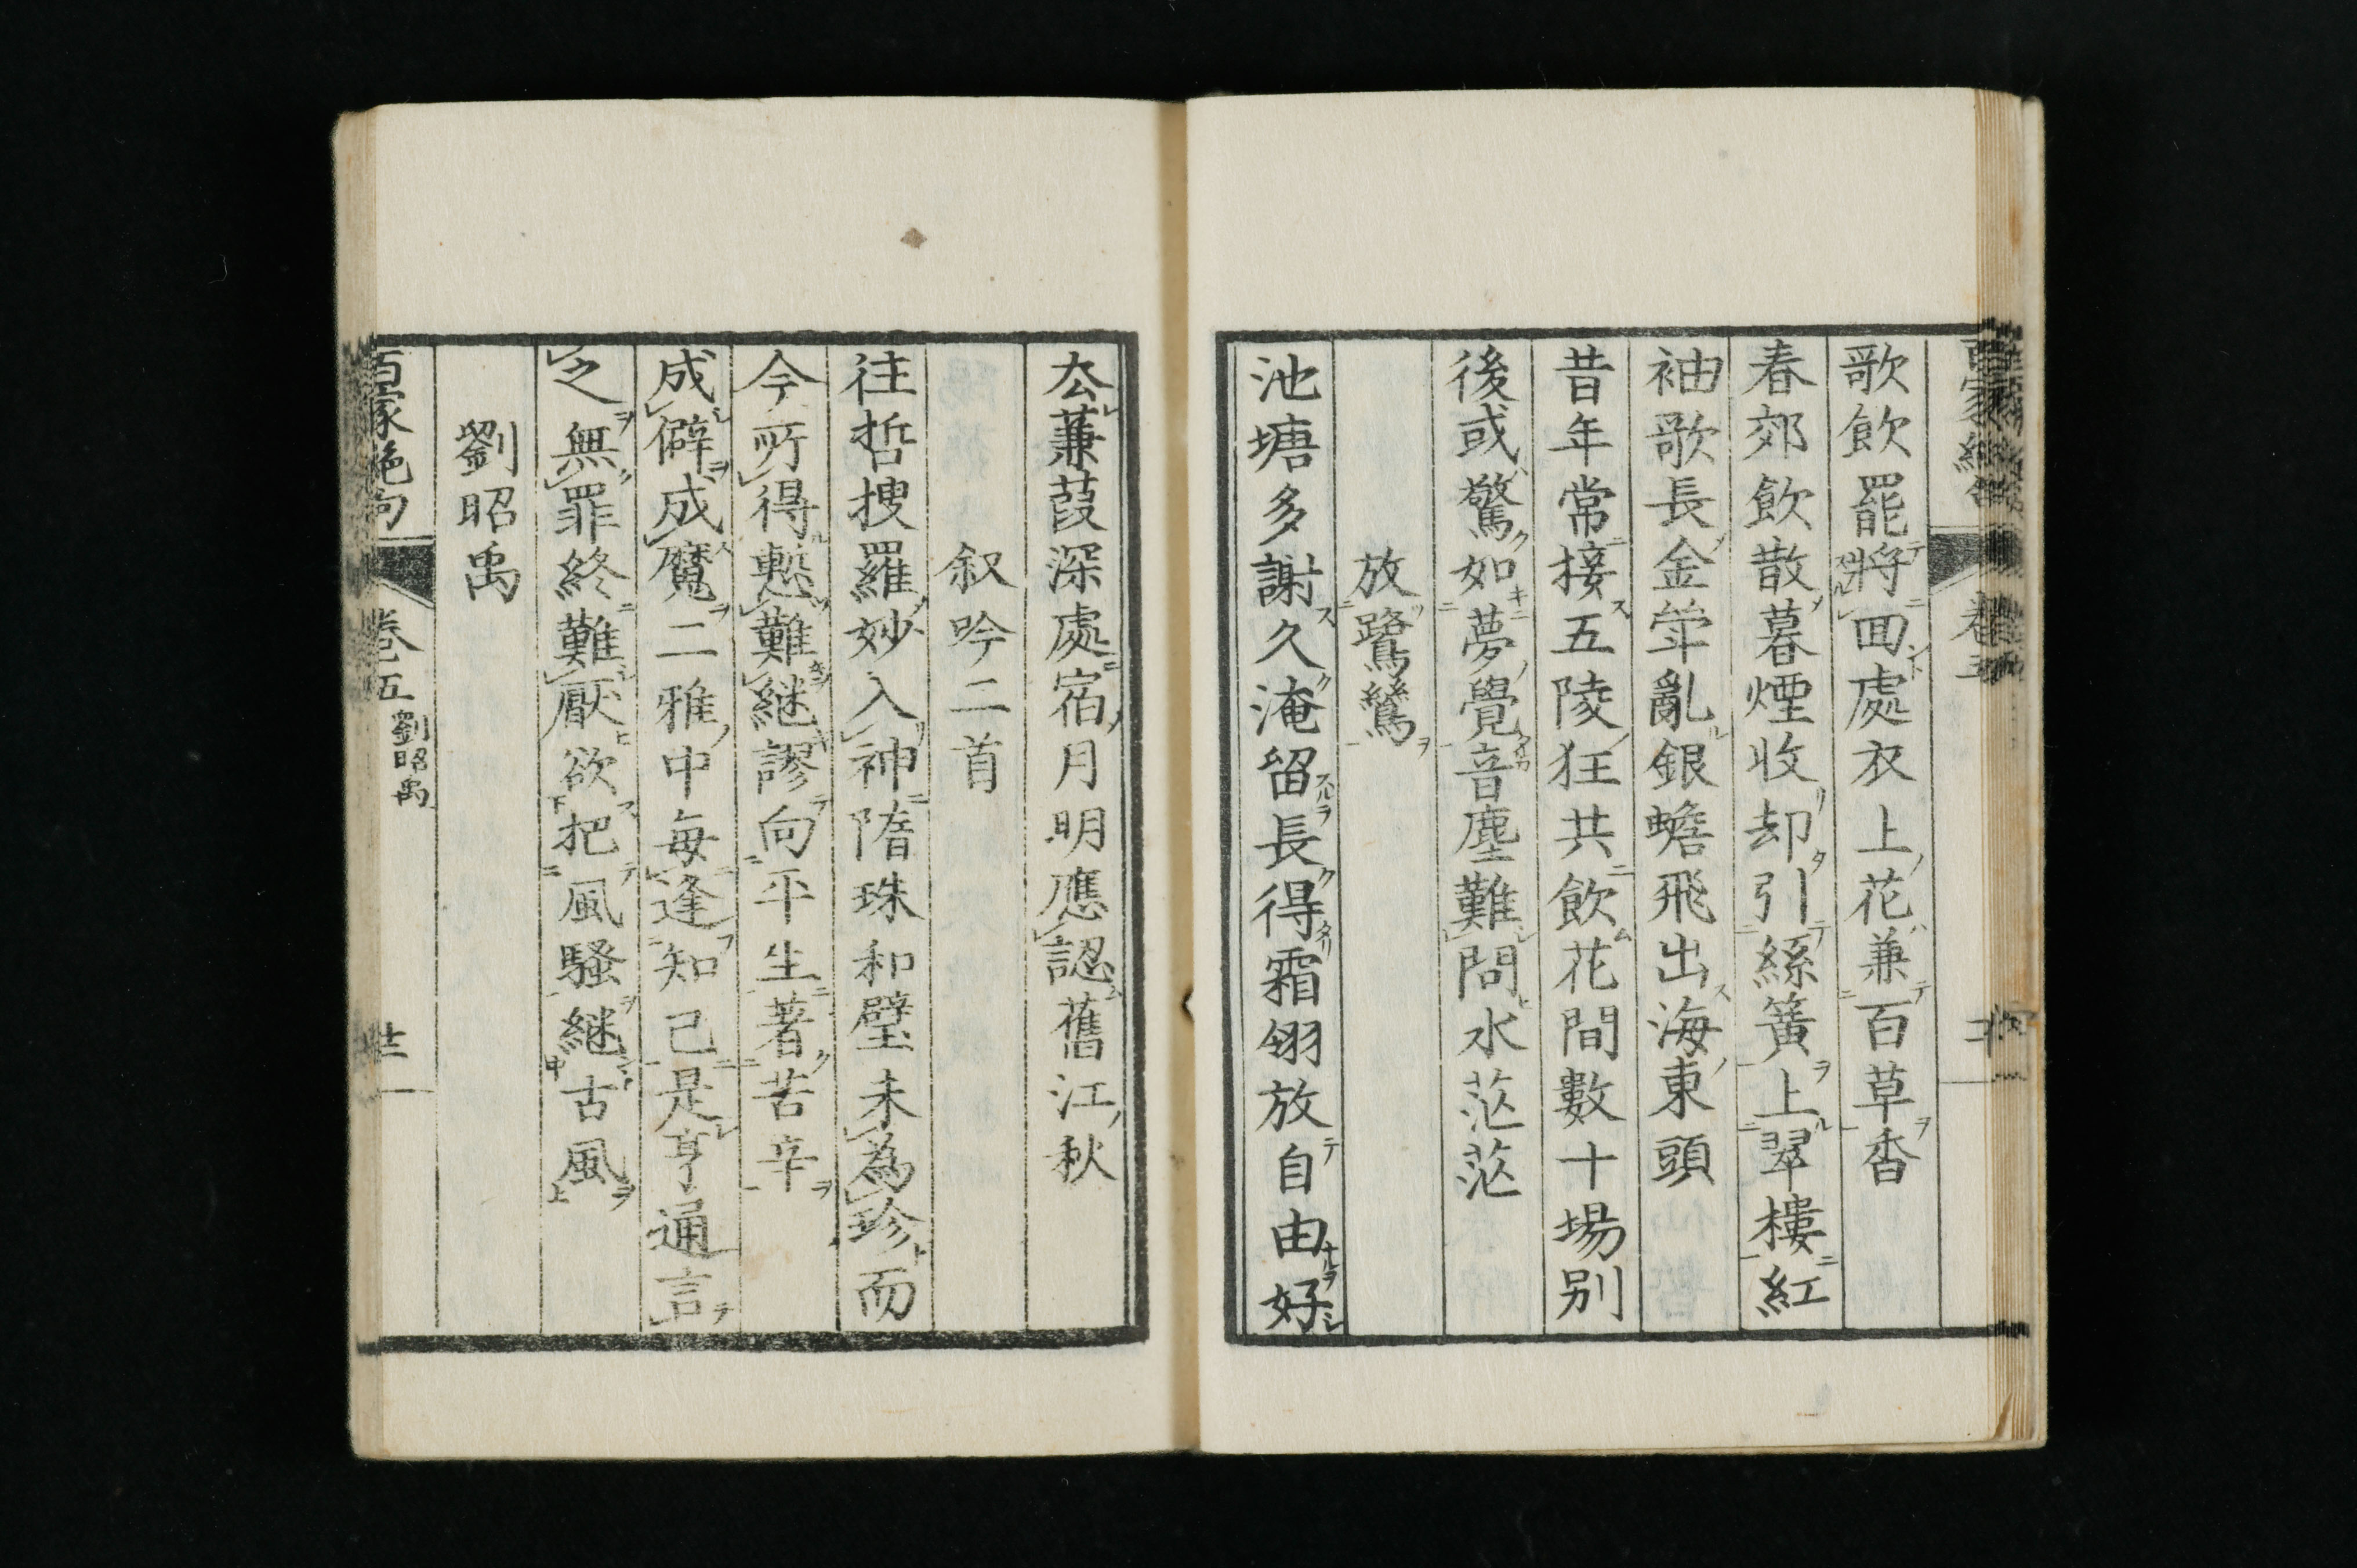 歌飲罷將囬處衣上花兼百草香
春郊飲散暮煙收却引絲簧上翠樓紅
袖歌長金斝亂銀蟾飛出海東頭
昔年常接五陵狂共飲花間數十場别
後或驚如夢覺音塵難問水茫茫
放鷺鷥
池塘多謝久淹留長得霜翎放自由好
厺蒹葭深處宿月明應認舊江秋
叙吟二首
徃哲搜羅妙入神隋珠和璧未為珍而
今所得慙難継謬向平生著苦辛
成僻成魔二雅中每逢知己是亨通言
之無罪終難厭欲把風騷継古風
劉昭禹
百家絶句 卷五 劉昭禹